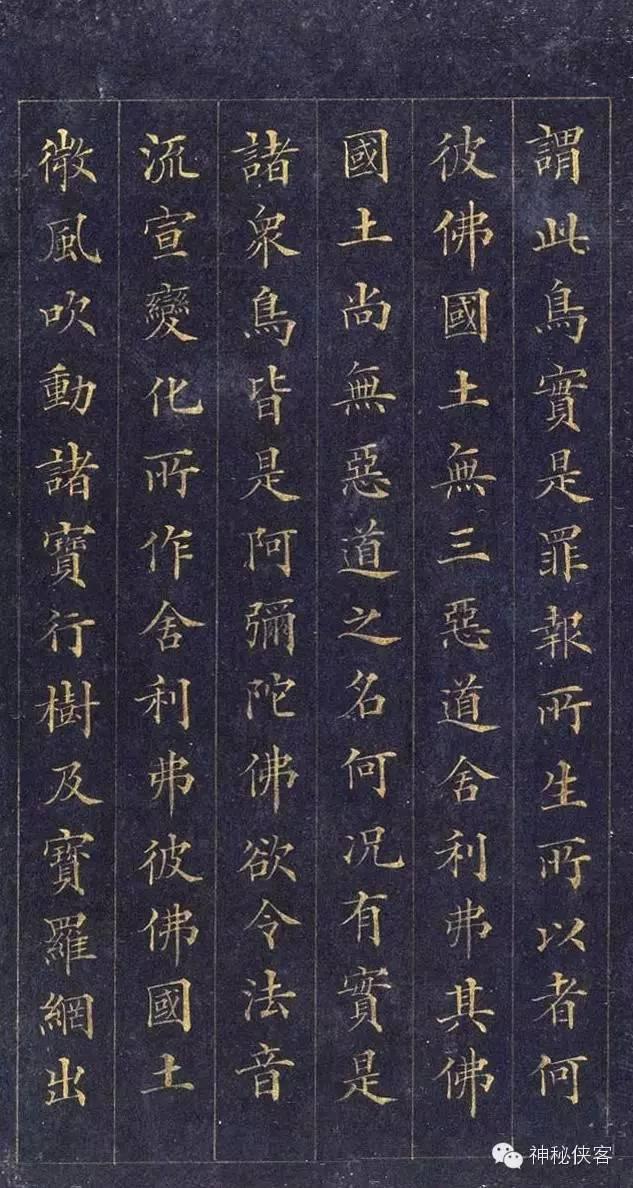 謂此鳥實是罪報所生所以者何
彼佛國土無三惡道舍利弗其佛
國土尚無惡道之名何况有實是
諸衆鳥皆是阿彌陀佛欲令法音
流宣變化所作舍利弗彼佛國土
微風吹動諸寶行樹及寳羅網出
神秘侠客